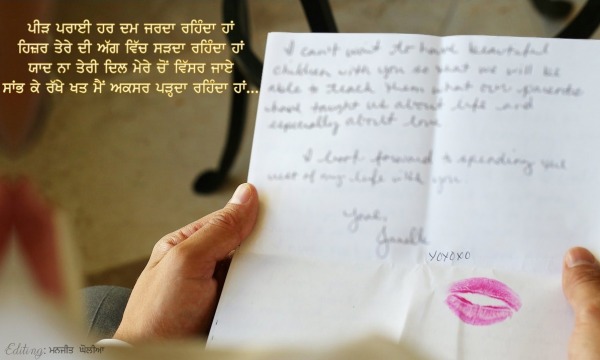 ਪੀੜ ਪਰਾਈ ਹਰ ਦਮ ਜਰਦਾ ਰਹਿੰਦਾ ਹਾਂ
ਹਿਜ਼ਰ ਤੇਰੇ ਦੀ ਅੱਗ ਵਿੱਚ ਸੜਦਾ ਰਹਿੰਦਾ ਹਾਂ
ਯਾਦ ਨਾ ਤੇਰੀ ਦਿਲ ਮੇਰੇ ਚੋਂ ਵਿੱਸਰ ਜਾਏ
ਸਾਂਭ ਕੇ ਰੱਖੇ ਖਤ ਮੈਂ ਅਕਸਰ ਪੜ੍ਹਦਾ ਰਹਿੰਦਾ ਹਾਂ...
I can't wait to have beautiful
children with you so that we will be
able to teach them what our parents
have taught us about life and
especially about love
I look forward to spending the
rest of my life with you
Yours,
Janelle
XOXOXO
Editing: ਮਨਜੀਤ ਘੋਲੀਆ